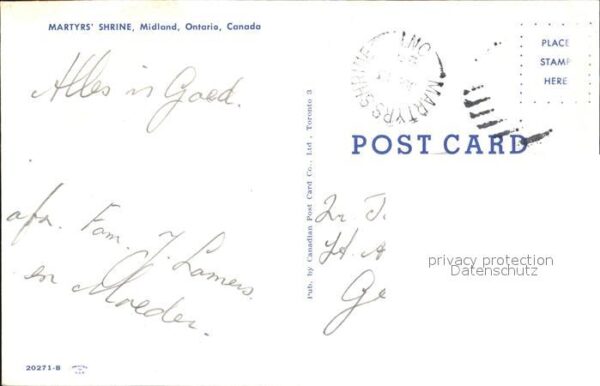 MARTYRS' SHRINE, Midland, Ontario, Canada
Alles is Goed.
afz. Fam. J. Lamers.
en Moeder.
20271-B
Pub. by Canadian Post Card Co., Ltd., Toronto 3
MARTYRS SHRINE ONT
PLACE
STAMP
HERE
POST CARD
J.
H. A
Ge
privacy protection
Datenschutz